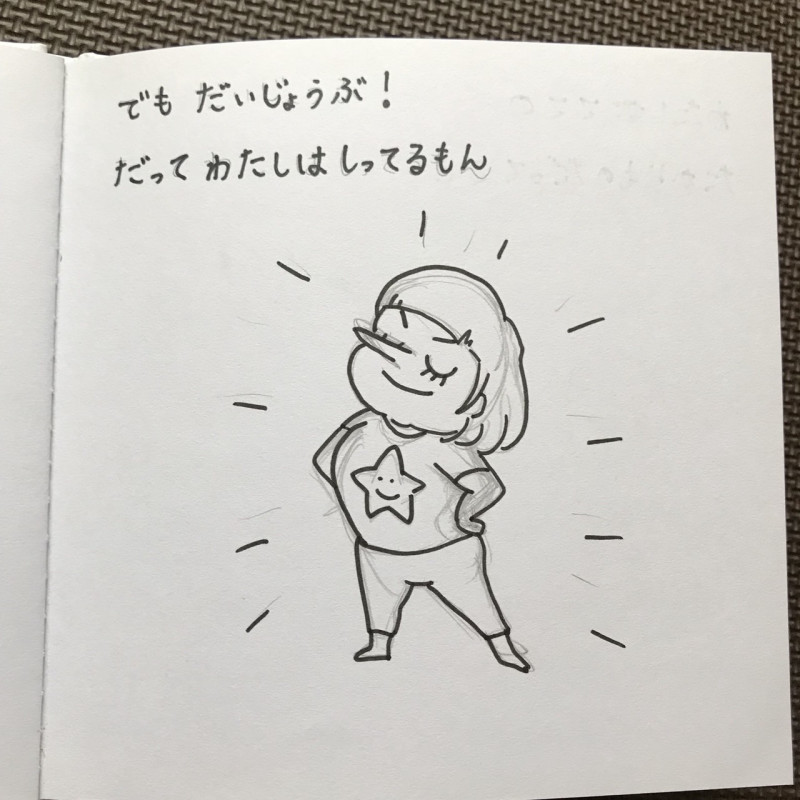 でも だいじょうぶ!
だって わたしは しってるもん